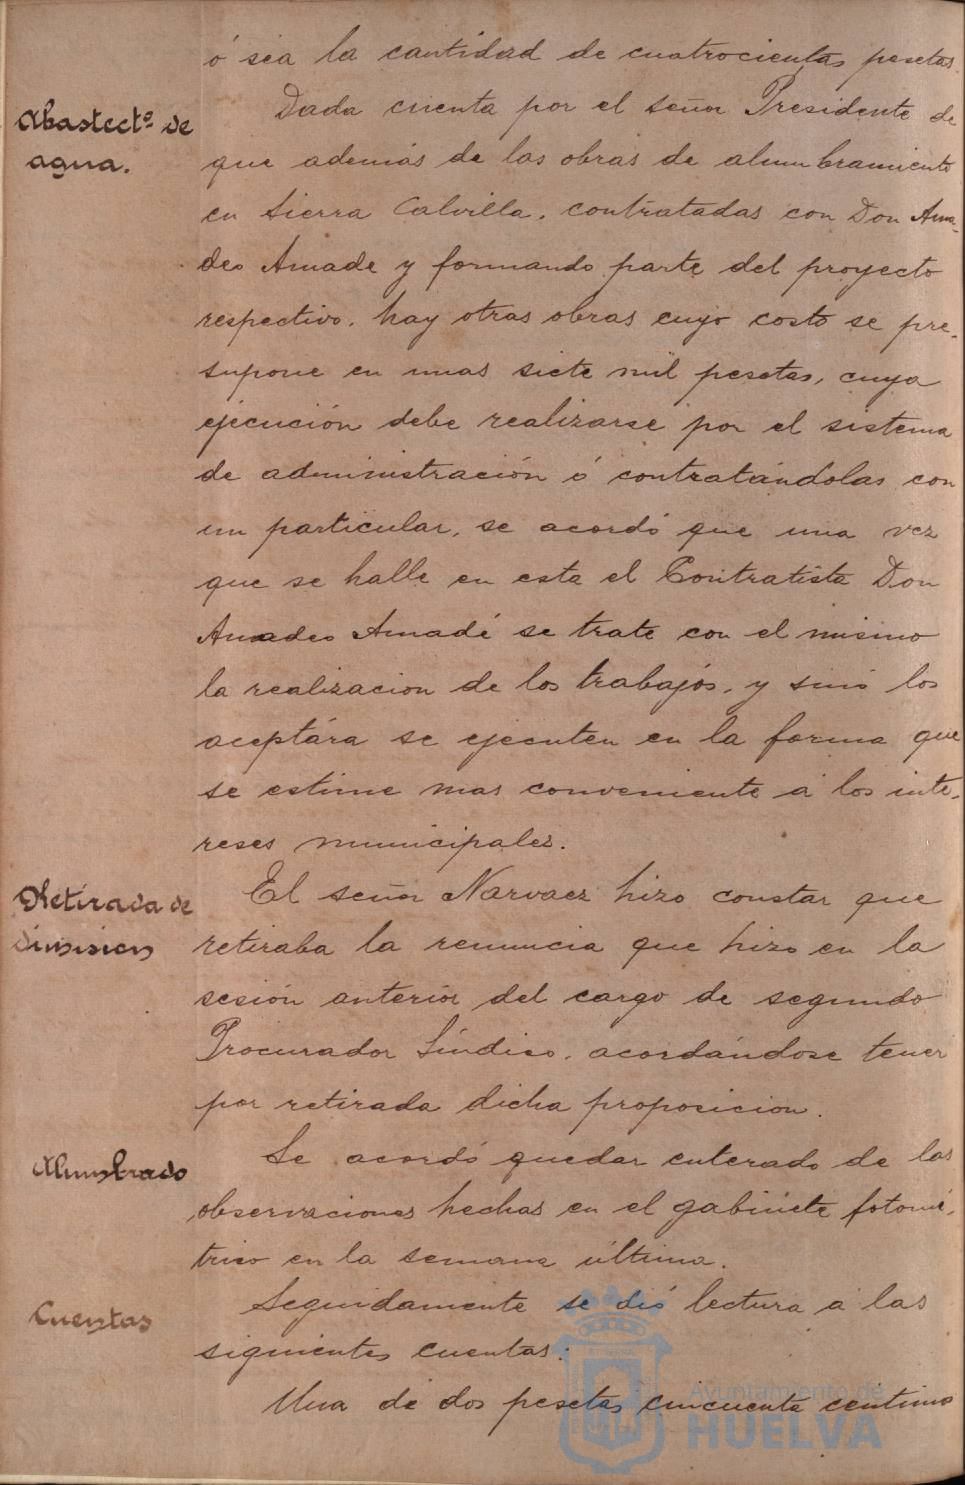 ó sea la cantidad de cuatrocientas pesetas.
Abastectº de
agua.
Dada cuenta por el señor Presidente de
que además de las obras de alumbramiento
en Sierra Calvilla, contratadas con Don Ama-
deo Amade y formando parte del proyecto
respectivo, hay otras obras cuyo costo se pre-
supone en unas siete mil pesetas, cuya
ejecución debe realizarse por el sistema
de administración ó contratándolas con
un particular, se acordó que una vez
que se halle en esta el Contratista Don
Amadeo Amadé se trate con el mismo
la realizacion de los trabajos, y sinó los
aceptára se ejecuten en la forma que
se estime mas conveniente á los inte-
reses municipales.
Retirada de
dimision
El señor Narvaez hizo constar que
retiraba la renuncia que hizo en la
sesión anterior del cargo de segundo
Procurador Síndico, acordándose tener
por retirada dicha proposicion.
Alumbrado
Se acordó quedar enterado de las
observaciones hechas en el gabinete fotomé-
trico en la semana última.
Cuentas
Seguidamente se dió lectura á las
siguientes cuentas:
Una de dos pesetas cincuenta centimos
Ayuntamiento de
HUELVA